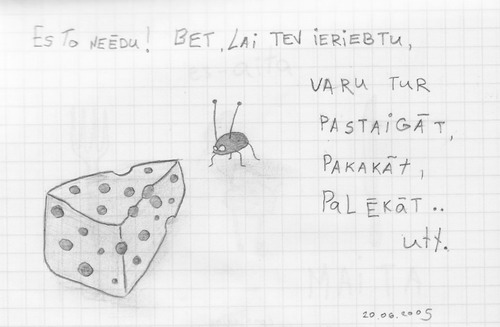 ES TO NEĒDU! BET, LAI TEV IERIEBTU,
VARU TUR
PASTAIGĀT,
PAKAKĀT,
PALĒKĀT..
utt.
20.06.2005